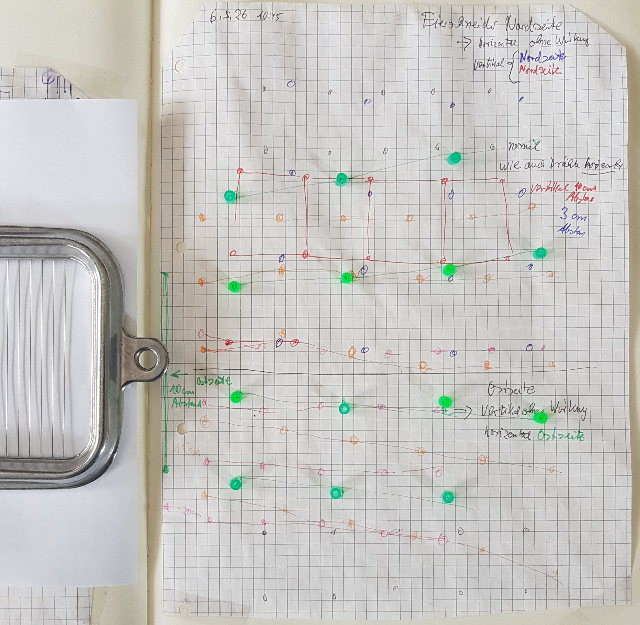 6.5.26 10:45
Eierschneider Nordseite
→ horizontal ohne Wirkung
vertikal { Nordseite
Nordseite
normal
wie auch Drähte horizontal
vertikal 10cm
Abstan
3 cm
Abstan
Ostseite
10 cm
Abstand
Ostseite
→ vertikal ohne Wirkung
horizontal Ostseite